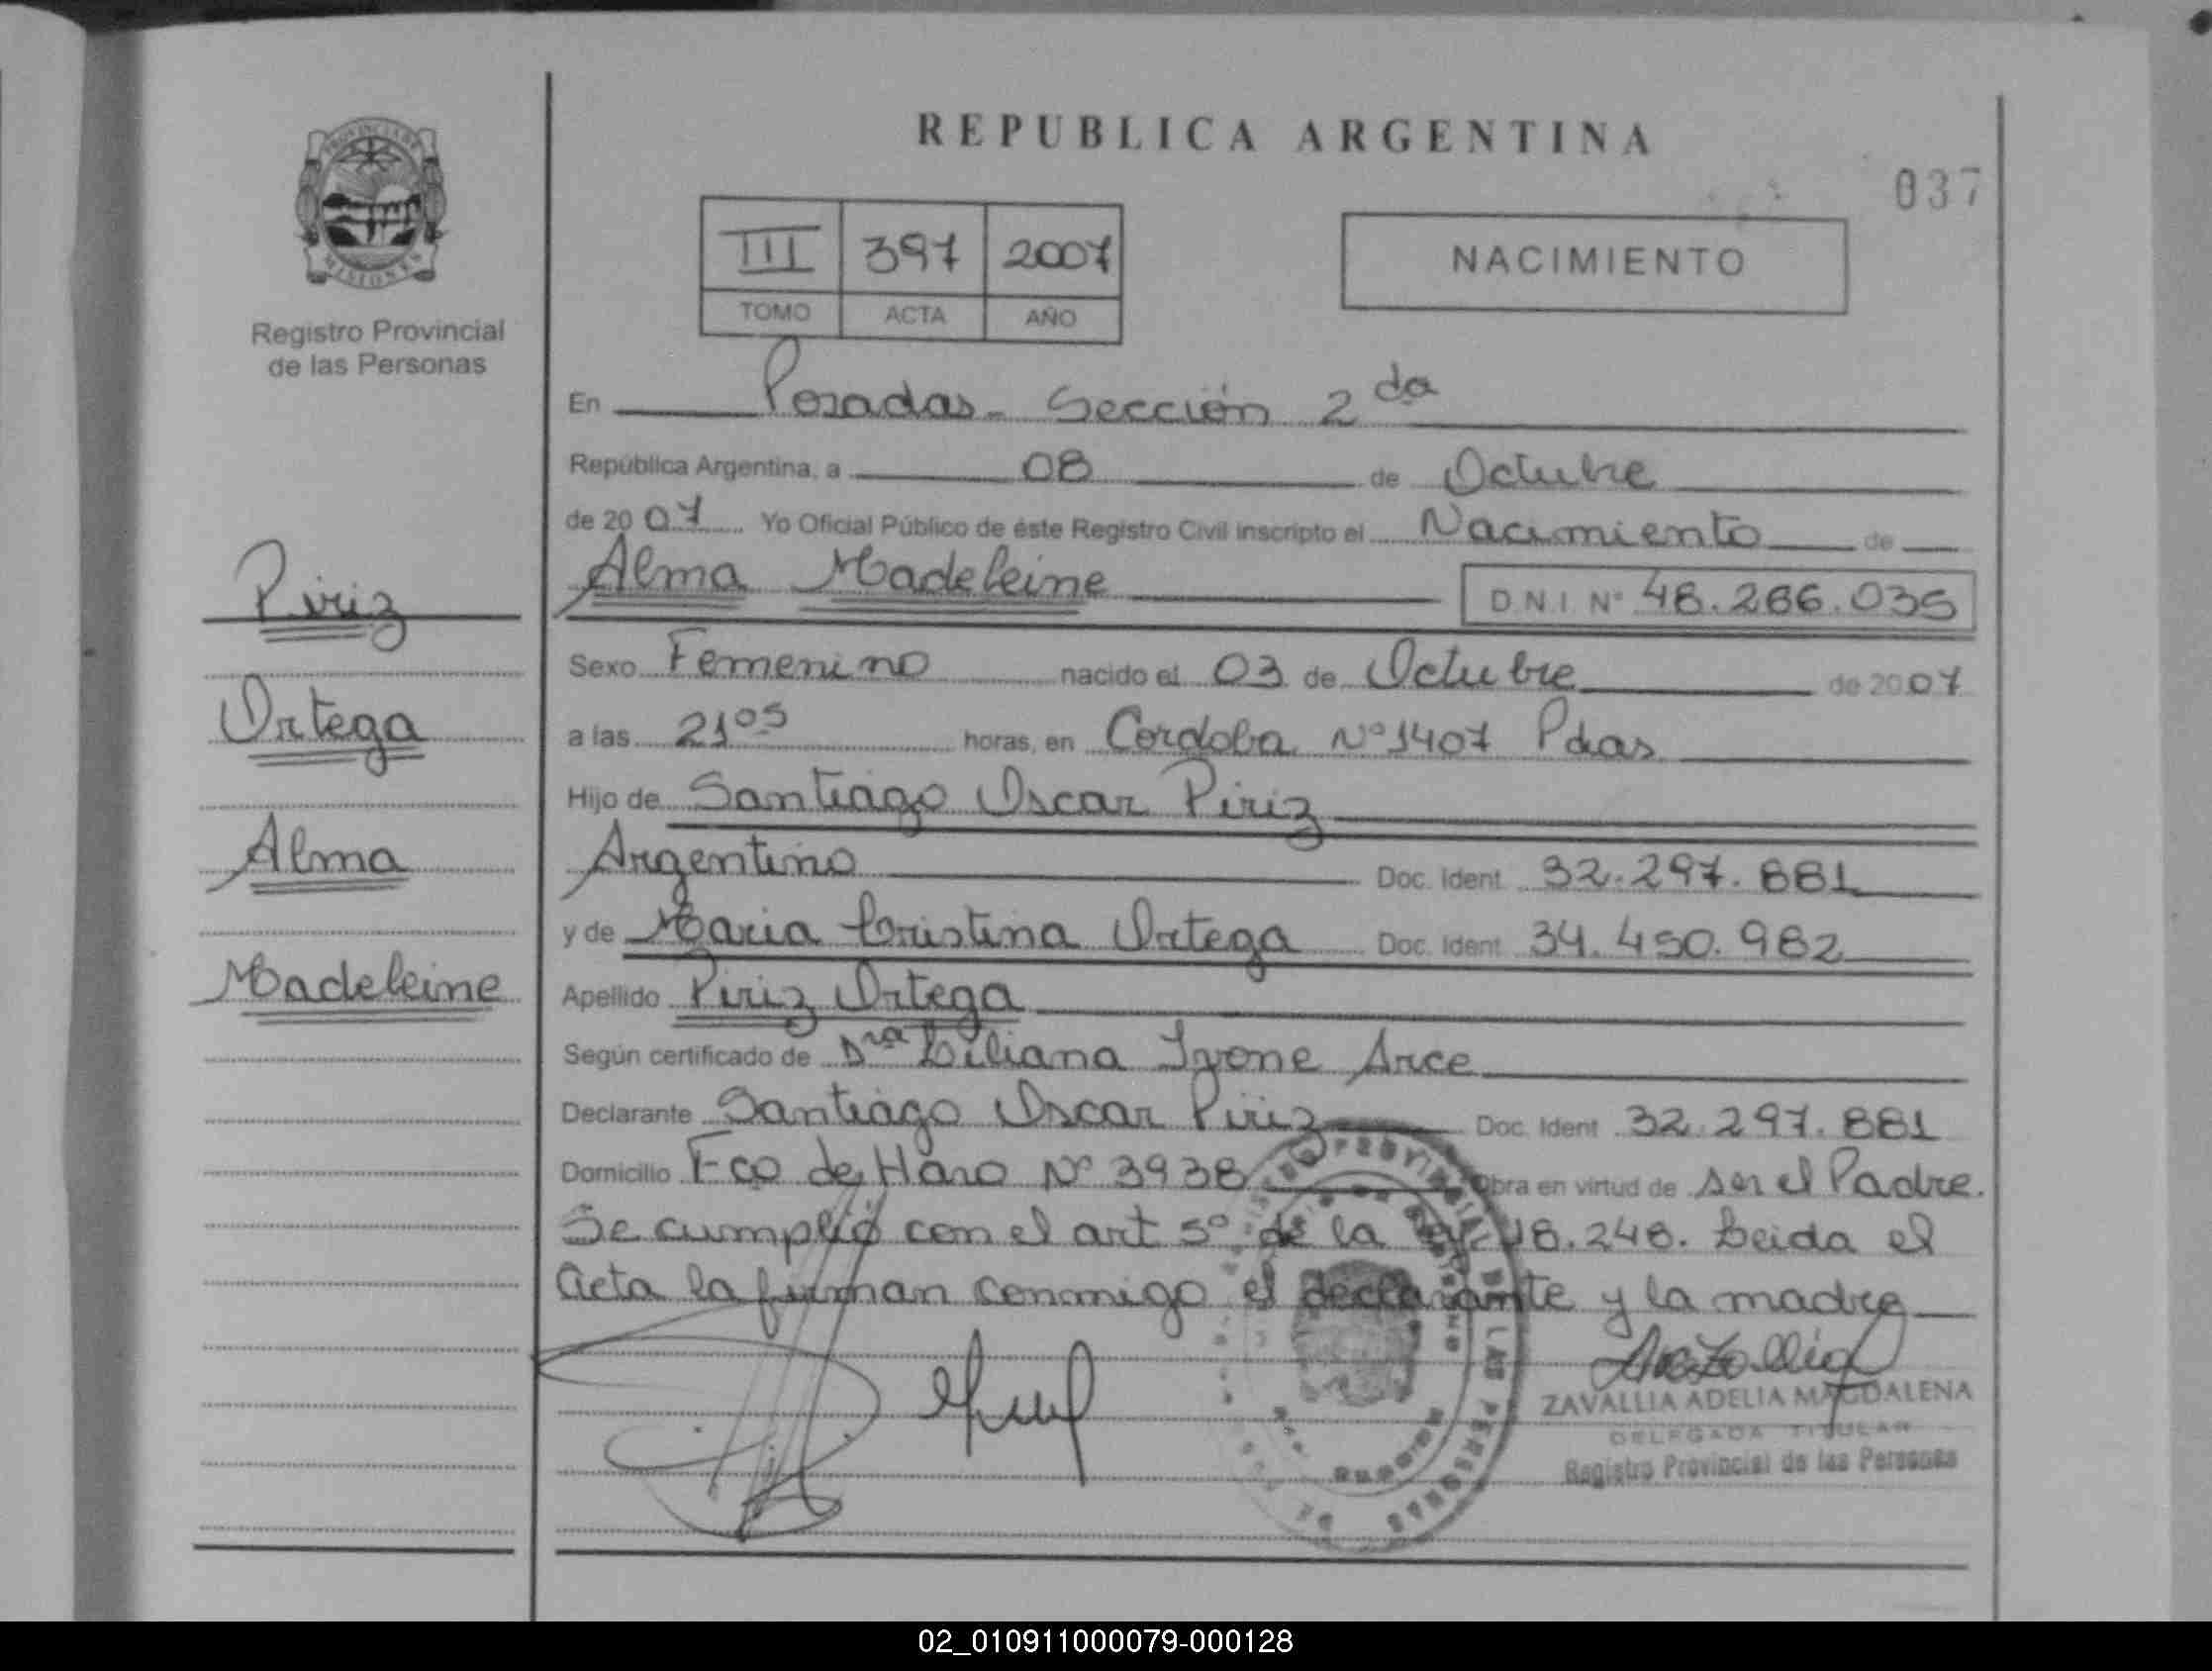 REPUBLICA ARGENTINA
037
PROVINCIA DE
MISIONES
Registro Provincial
de las Personas
III 397 2007
TOMO ACTA AÑO
NACIMIENTO
En Posadas - Sección 2da
República Argentina, a 08 de Octubre
de 2007 Yo Oficial Público de éste Registro Civil inscripto el Nacimiento de
Alma Madeleine D.N.I. Nº 48.286.035
Sexo Femenino nacido el 03 de Octubre de 2007
a las 21 05 horas, en Cordoba Nº 1407 Pdas
Hijo de Santiago Oscar Piriz
Argentino Doc. Ident. 32.297.881
y de Maria Cristina Ortega Doc. Ident. 34.450.982
Apellido Piriz Ortega
Según certificado de Dra Liliana Ivone Arce
Declarante Santiago Oscar Piriz Doc. Ident 32.297.881
Domicilio Fco de Haro Nº 3938 Obra en virtud de ser el Padre.
Se cumplió con el art 5º de la ley 18.248. Leida el
acta la firman conmigo el declarante y la madre
Piriz
Ortega
Alma
Madeleine
ZAVALLIA ADELIA MAGDALENA
DELEGADA TITULAR
Registro Provincial de las Personas
02_010911000079-000128